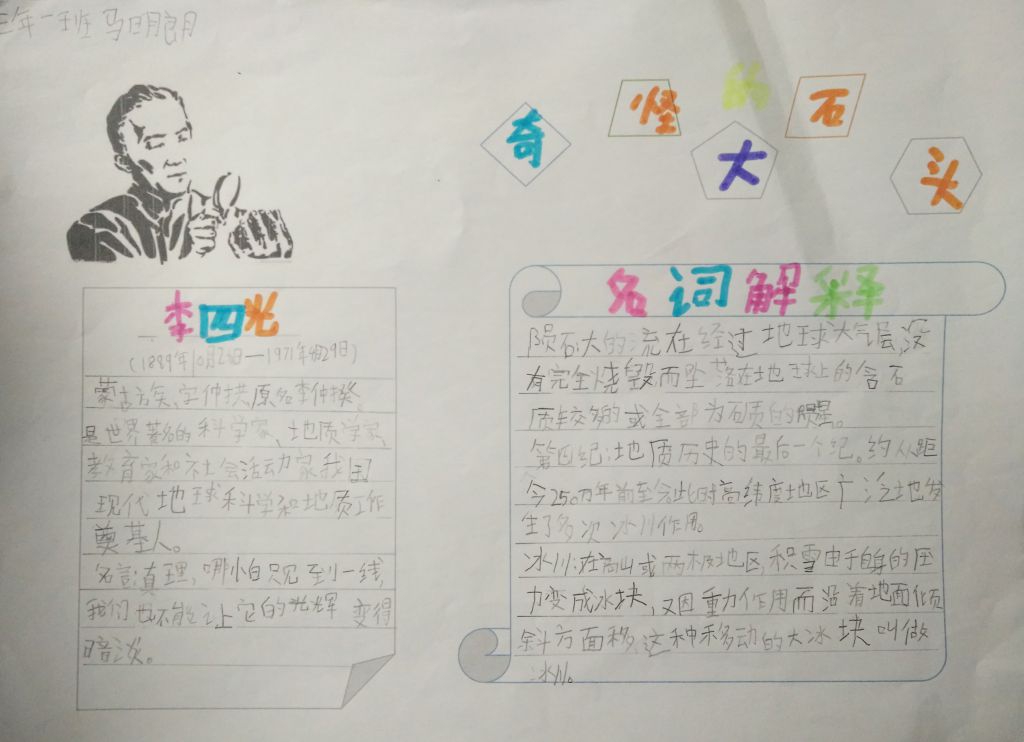 三年一班 马明朗
奇怪的大石头
李四光
(1889年10月26日—1971年4月29日)
蒙古族、字仲拱原名李仲揆、
是世界著名的科学家、地质学家、
教育家和社会活动家我国
现代地球科学和地质工作
奠基人。
名言真理,哪怕只见到一线,
我们也不能让它的光辉变得
暗淡。
名词解释
陨石:大的流在经过地球大气层,没
有完全烧毁而坠落在地球上的含石
质较多的或全部为石质的陨星。
第四纪:地质历史的最后一个纪。约从距
今250万年前至今此时高纬度地区广泛地发
生了多次冰川作用。
冰川:在高山或两极地区,积雪由于自身的压
力变成冰块,又因重力作用而沿着地面倾
斜方面移,这种移动的大冰块叫做
冰川。